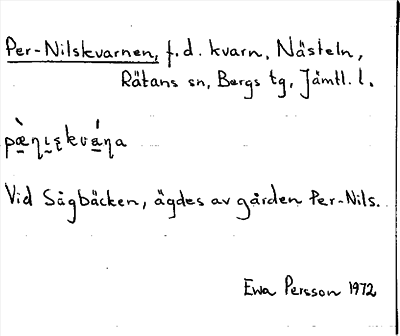 Per-Nilskvarnen, f.d. kvarn, Nästeln,
Rätans sn, Bergs tg, Jämtl. l.
pæ̀ṇıʂkvána
Vid Sågbäcken, ägdes av gården Per-Nils.
Ewa Persson 1972